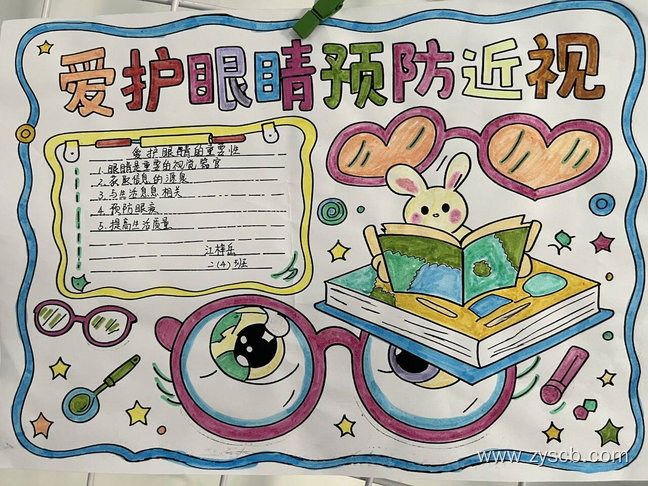 爱护眼睛预防近视
爱护眼睛的重要性
1.眼睛是重要的视觉器官
2.获取信息的源泉
3.与生活息息相关
4.预防眼疾
5.提高生活质量
江梓岳
二(4)班
www.zyscb.com